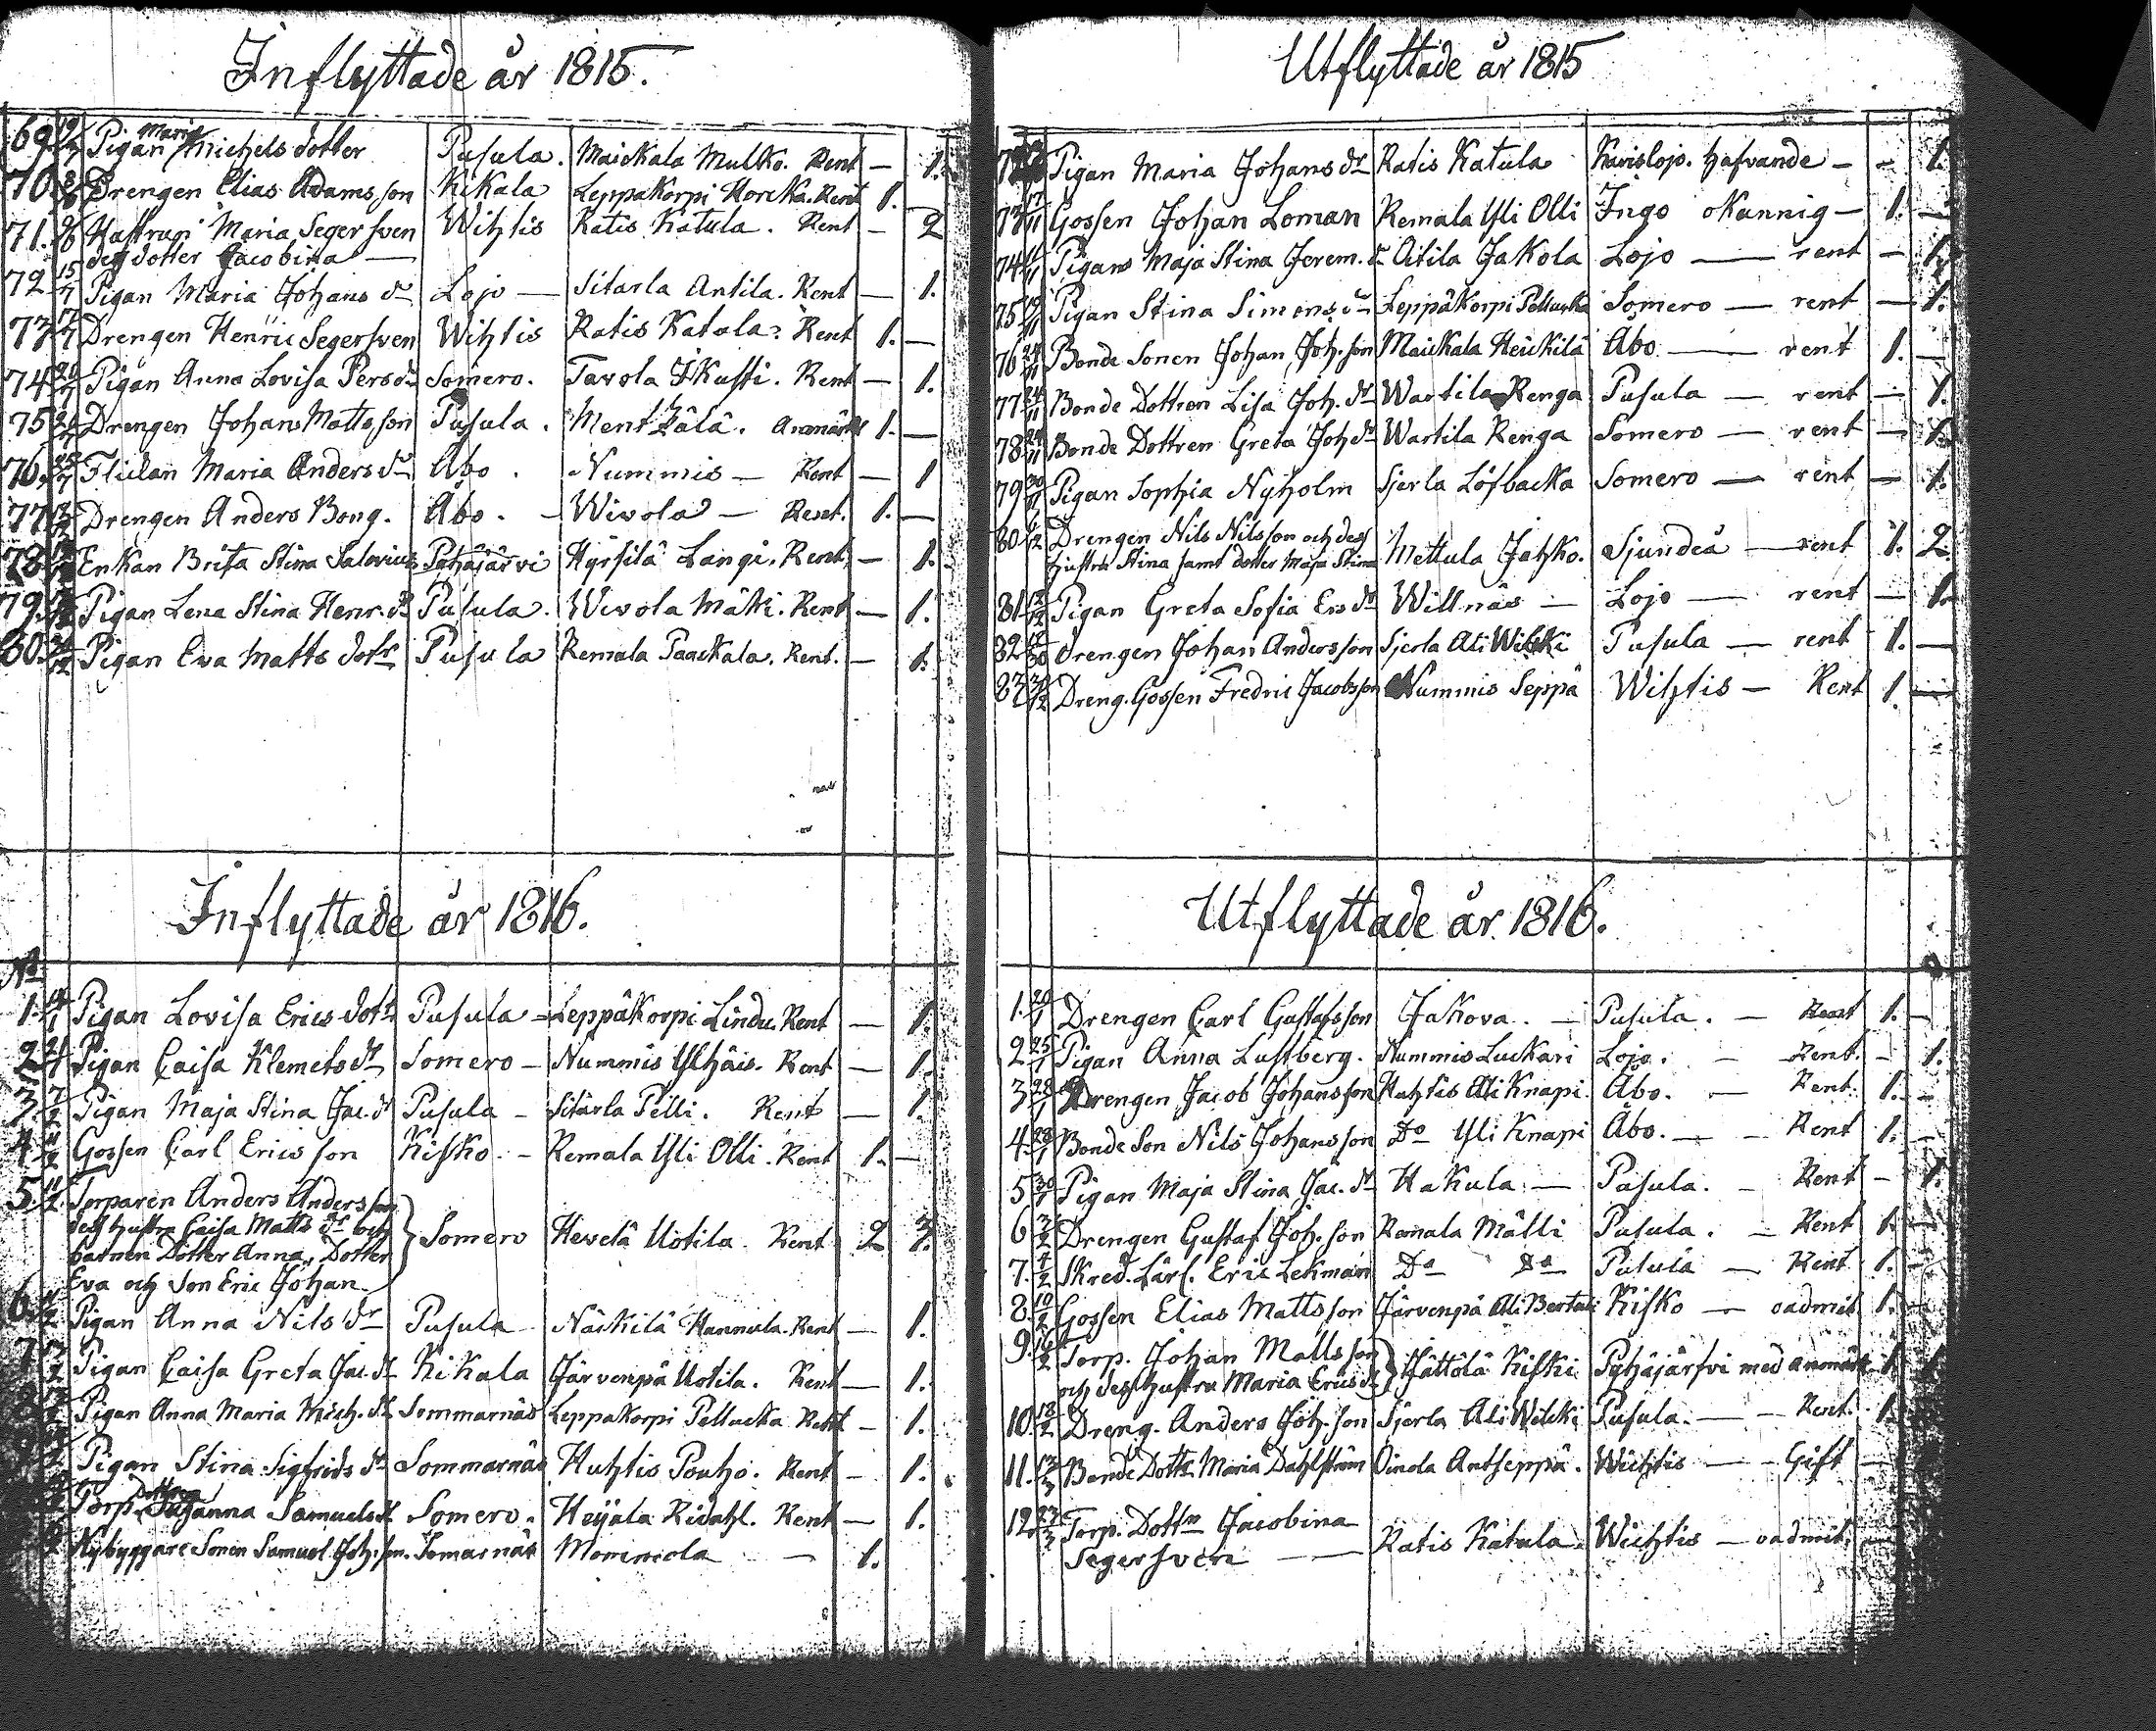 Inflyttade år 1815.
69. Pigan Maria Michelsdotter Pusula. Maickala Mulko. Rent — 1.
70. Drengen Elias Adamsson Kikala Leppäkorpi Horcka. Rent 1. —
71. Hustrun Maria Segersven Wihtis Ratis Katula. Rent — 2
dess dotter Jacobina —
72 15/7 Pigan Maria Johans dr Lojo — Sitarla Antila. Rent — 1.
73 17/7 Drengen Henric Segersven Wihtis Ratis Katula. Rent 1. —
74 20/7 Pigan Anna Lovisa Pers dr Somero. Tavola Ikusti. Rent — 1.
75 Drengen Johan Mattsson Pusula. Mentzälä. Anmärkt 1. —
76. Flickan Maria Anders dr Åbo. Nummis — Rent — 1
77 Drengen Anders Bong. Åbo. — Wivola — Rent. 1. —
78 Enkan Brita Stina Salovius Pyhäjärvi Hyrsilä Langi. Rent. — 1.
79. Pigan Lena Stina Henr. dr Pusula. Wivola Mäki. Rent — 1.
80. Pigan Eva Matts dotr Pusula Remala Paackala. Rent. — 1.
Inflyttade år 1816.
No
1. Pigan Lovisa Erics dotr Pusula — Leppäkorpi Lindu Rent — 1.
2 Pigan Caisa Klemets dr Somero — Nummis Ylhäis. Rent — 1.
3. 7/2 Pigan Maja Stina Jac. dr Pusula — Sitarla Pelli. Rent — 1.
4 Gossen Carl Ericsson Kisko. — Remala Yli Olli. Rent 1. —
5. 11/2 Torparen Anders Andersson
dess hustru Caisa Matts dr och
barnen Dotter Anna, Dotter Somero Hevelä Uotila. Rent 2 3.
Eva och Son Eric Johan.
6. Pigan Anna Nils dr Pusula Näckilä Hannula. Rent — 1.
7 Pigan Caisa Greta Jac. dr Kikala Järvenpä Uotila. Rent — 1.
Pigan Anna Maria Mich. dr Sommarnäs Leppäkorpi Pellucka Rent — 1.
Pigan Stina Sigfrids dr Sommarnäs Huhtis Pouho. Rent — 1.
Torp. Dottren Susanna Samuels dr Somero. Heijala Ridahl. Rent — 1.
Nybyggare Sonen Samuel Joh. son. Somarnäs Mommola — 1.
Utflyttade år 1815
72 Pigan Maria Johans dr Ratis Katula Karislojo. hafvande — — 1.
73 17/11 Gossen Johan Loman Remala Yli Olli Ingo okunnig — 1. —
74 Pigan Maja Stina Jerem. dr Oitila Jakola Lojo — rent — 1.
75 Pigan Stina Simons dr Leppäkorpi Pellucka Somero — rent — 1.
76 24/11 Bonde Sonen Johan Joh. son Maickala Heickilä Åbo — rent 1. —
77 24/11 Bonde Dottren Lisa Joh. dr Wartila Renga Pusula — rent — 1.
78 24/11 Bonde Dottren Greta Joh dr Wartila Renga Somero — rent — 1.
79 Pigan Sophia Nyholm Sjerla Löfbacka Somero — rent — 1.
80 Drengen Nils Nilsson och dess
hustru Stina samt dotter Maja Stina Mettula Jahko. Sjundeå — rent 1. 2.
81 Pigan Greta Sofia Ers dr Willnäs — Lojo — rent — 1.
82 Drengen Johan Andersson Sjerla Ali Wilcki Pusula — rent 1. —
83 Dreng. Gossen Fredric Jacobsson Nummis Seppä Wihtis — Rent 1. —
Utflyttade år 1816.
1. 20/1 Drengen Carl Gustafsson Jakova. — Pusula. — Rent 1. —
2 25/1 Pigan Anna Lustberg. Nummis Luckari Lojo. — Rent. — 1.
3 28/1 Drengen Jacob Johansson Huhtis Ali Knapi. Åbo. — Rent. 1. —
4 28/1 Bonde Son Nils Johansson Do Yli Knapi Åbo. — Rent 1. —
5 30/1 Pigan Maja Stina Jac. dr Hakula — Pusula. — Rent — 1.
6 3/2 Drengen Gustaf Joh. son Remala Mälli Pusula. — Rent 1. —
7. 4/2 Skred. Lärl. Eric Lekman Do Do Pusula — Rent 1. —
8. 10/2 Gossen Elias Mattsson Järvenpä Ali Bertula Kisko — oadmit. 1. —
9. 16/2 Torp. Johan Mattsson
och dess hustru Maria Erics dr Hättölä Kiski Pyhäjärfvi med anmärkn. 1. 1.
10. 18/2 Dreng. Anders Joh. son Sjerla Ali Wilcki Pusula. — Rent. 1.
11. 13/3 Bonde Dottr. Maria Dahlström Oinola Antseppä. Wichtis — Gift —
12. 23/3 Torp. Dottrn Jacobina
Segersven — Ratis Katula. Wichtis — oadmit. —